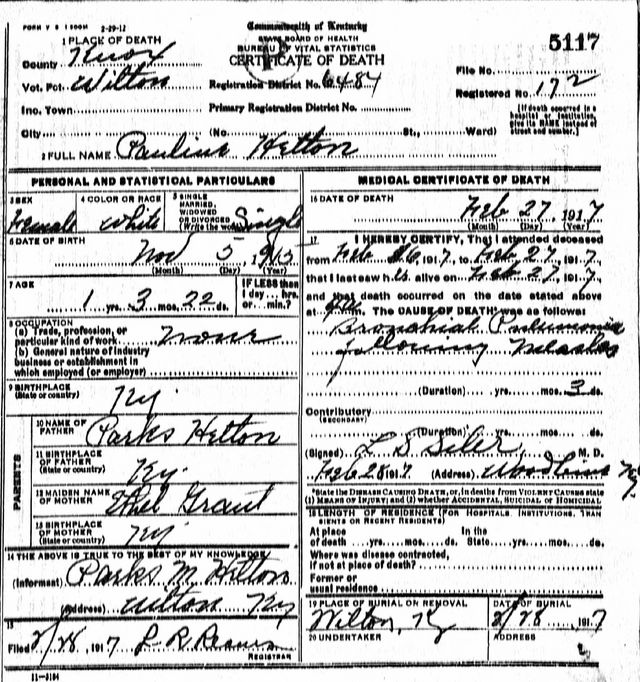 FORM V S 1 500M 2-29-12
Commonwealth of Kentucky
STATE BOARD OF HEALTH
BUREAU OF VITAL STATISTICS
CERTIFICATE OF DEATH
5117
1 PLACE OF DEATH
County Knox
Vot. Pct. Wilton
Registration District No. 6484
File No.
Registered No. 172
Inc. Town
Primary Registration District No.
[If death occurred in a hospital or institution, give its NAME instead of street and number.]
City (No. St., Ward)
2 FULL NAME Pauline Helton
PERSONAL AND STATISTICAL PARTICULARS
3 SEX Female
4 COLOR OR RACE White
5 SINGLE, MARRIED, WIDOWED OR DIVORCED (Write the word) Single
6 DATE OF BIRTH Nov 5, 1915
(Month) (Day) (Year)
7 AGE 1 yrs. 3 mos. 22 ds.
IF LESS than 1 day... hrs. or... min.?
8 OCCUPATION
(a) Trade, profession, or particular kind of work none
(b) General nature of industry
business or establishment in
which employed (or employer)
9 BIRTHPLACE
(State or country) Ky.
PARENTS
10 NAME OF FATHER Parks Helton
11 BIRTHPLACE OF FATHER
(State or country) Ky.
12 MAIDEN NAME OF MOTHER Ethel Grant
13 BIRTHPLACE OF MOTHER
(State or country) Ky
14 THE ABOVE IS TRUE TO THE BEST OF MY KNOWLEDGE
(Informant) Parks M. Helton
(Address) Wilton Ky
15
Filed 2/28, 1917 L. R. Reaves
REGISTRAR
11-3184
MEDICAL CERTIFICATE OF DEATH
16 DATE OF DEATH Feb 27, 1917
(Month) (Day) (Year)
17 I HEREBY CERTIFY, That I attended deceased
from Feb 26, 1917, to Feb 27, 1917,
that I last saw h alive on Feb 27, 1917,
and that death occurred on the date stated above
at m. The CAUSE OF DEATH was as follows:
Bronchial Pneumonia
following Measles
(Duration) yrs. mos. 3 ds.
Contributory
(SECONDARY)
(Duration) yrs. mos. ds.
(Signed) L S Siler, M. D.
Feb 28 1917 (Address) Woodbine Ky.
*State the DISEASE CAUSING DEATH, or, in deaths from VIOLENT CAUSES state
(1) MEANS OF INJURY; and (2) whether ACCIDENTAL, SUICIDAL OR HOMICIDAL
18 LENGTH OF RESIDENCE (FOR HOSPITALS, INSTITUTIONS, TRANSIENTS OR RECENT RESIDENTS)
At place of death yrs. mos. ds. In the State yrs. mos. ds.
Where was disease contracted,
if not at place of death?
Former or
usual residence
19 PLACE OF BURIAL OR REMOVAL Wilton, Ky
DATE OF BURIAL 2/28, 1917
20 UNDERTAKER
ADDRESS